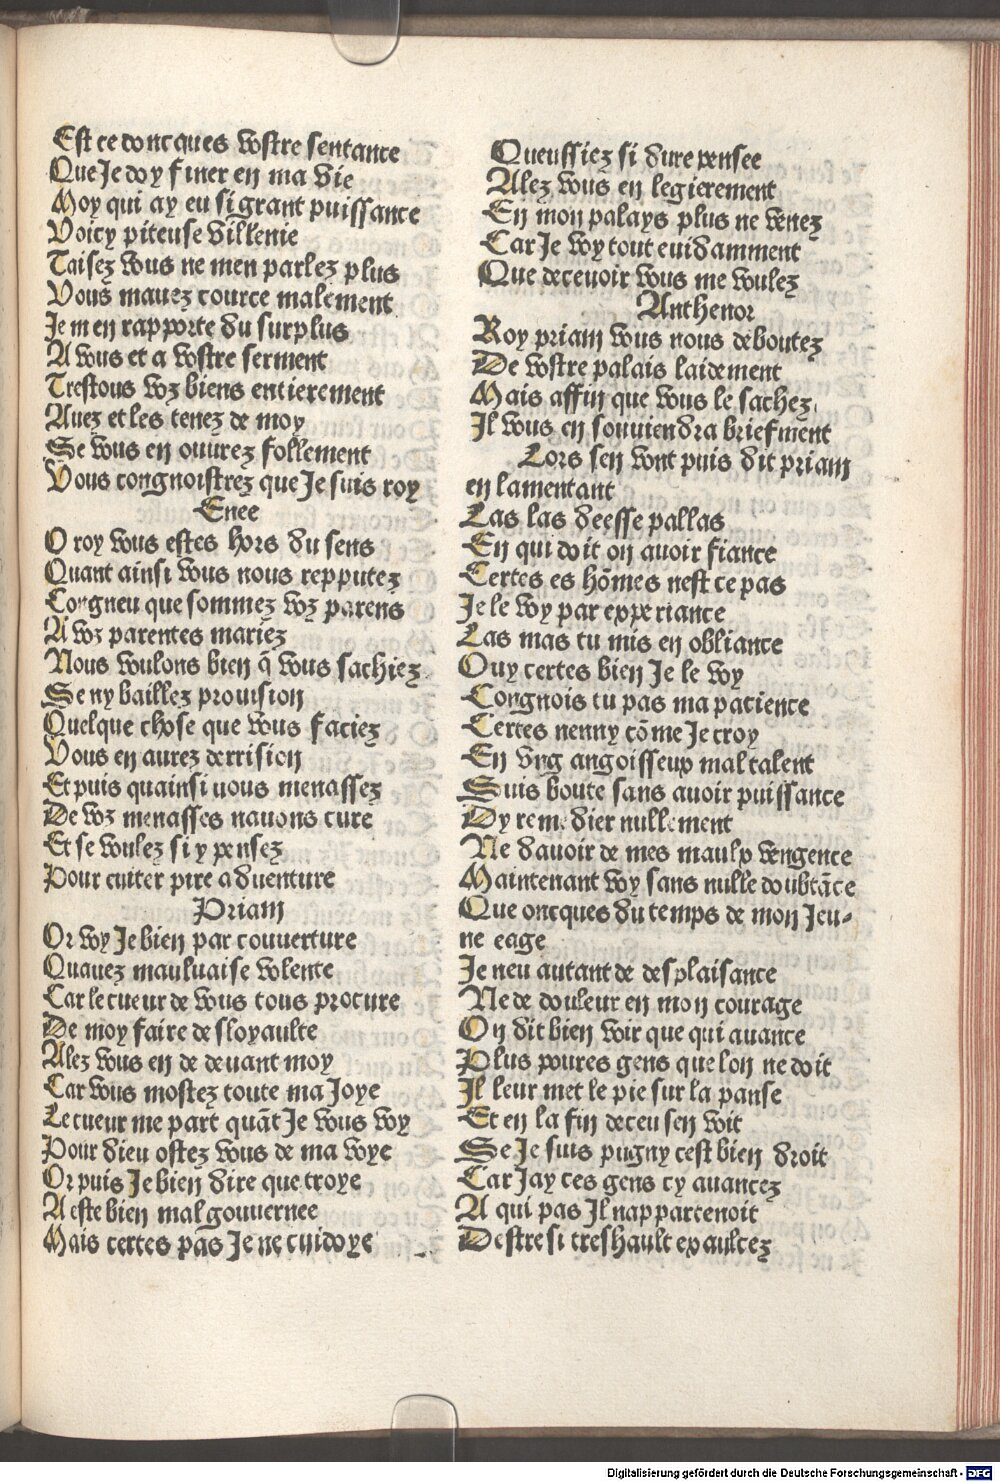 Est ce doncques vostre sentance
Que Je doy finer en ma vie
Moy qui ay eu si grant puissance
Voicy piteuse villenie
Taisez vous ne men parlez plus
Vous mavez cource malement
Je men rapporte du surplus
A vous et a vostre serment
Trestous voz biens entierement
Avez et les tenez de moy
Se vous en ouurez follement
Vous congnoistrez que Je suis roy
Enee
O roy vous estes hors du sens
Quant ainsi vous nous repputez
Congneu que sommez voz parens
A voz parentes mariez
Nous voulons bien q̄ vous sachiez
Se ny baillez prouision
Quelque chose que vous faciez
Vous en aurez derrision
Et puis quainsi nous menassez
De voz menasses nauons cure
Et se voulez si y pensez
Pour euiter pire aduenture
Priam
Or voy Je bien par couuerture
Quauez mauluaise volente
Car le cueur de vous tous procure
De moy faire desloyaulte
Alez vous en de deuant moy
Car vous mostez toute ma Joye
Le cueur me part quāt Je vous voy
Pour dieu ostez vous de ma voye
Or puis Je bien dire que troye
A este bien mal gouuernee
Mais certes pas Je ne cuidoye
Queussiez si dure pensee
Alez vous en legierement
En mon palays plus ne venez
Car Je voy tout euidamment
Que deceuoir vous me voulez
Anthenor
Roy priam vous nous deboutez
De vostre palais laidement
Mais affin que vous le sachez
Il vous en souuiendra briefment
Lors sen vont puis dit priam
en lamentant
Las las deesse pallas
En qui doit on auoir fiance
Certes es hōmes nest ce pas
Je le voy par experiance
Las mas tu mis en obliance
Ouy certes bien Je le voy
Congnois tu pas ma pacience
Certes nenny cōme Je croy
En vng angoisseux mal talent
Suis boute sans auoir puissance
Dy remedier nullement
Ne dauoir de mes maulx vengence
Maintenant voy sans nulle doubtāce
Que oncques du temps de mon Jeu-
ne eage
Je neu autant de desplaisance
Ne de douleur en mon courage
On dit bien voir que qui auance
Plus poures gens que lon ne doit
Il leur met le pie sur la panse
Et en la fin deceu sen voit
Se Je suis pugny cest bien droit
Car Jay ces gens cy auancez
A qui pas Il nappartenoit
Destre si treshault exaulcez
Digitalisierung gefördert durch die Deutsche Forschungsgemeinschaft - DFG